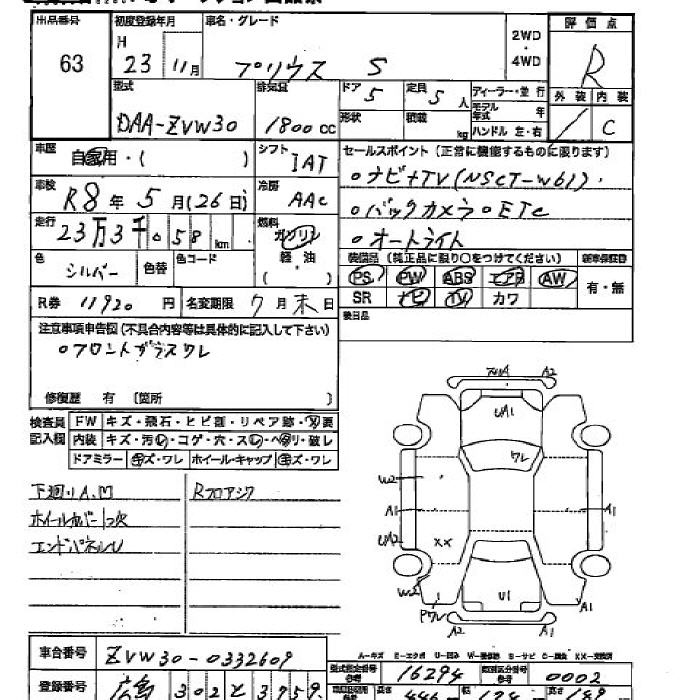 出品番号 初度登録年月 車名・グレード 評価点
63 H 23 11月 プリウス S 2WD・4WD R
型式 排気量 ドア 定員 ディーラー・並行 外装 内装
DAA-ZVW30 1800cc 5 5人 モデル年式 年 C
形状 積載 kg ハンドル 左・右
車歴 自家用・( ) シフト IAT セールスポイント (正常に機能するものに限ります)
車検 R8年 5月(26日) 冷房 AAC ○ナビ+TV(NSCT-W61)
走行 23万3千058km 燃料 ガソリン 軽油 ( ) ○バックカメラ○ETC
○オートライト
色 シルバー 色替 色コード 装備品 (純正品に限り○をつけてください) 新車保証書
PS PW ABS エアB AW 有・無
R券 11920円 名変期限 7月末日 SR ナビ TV カワ
後日品
注意事項申告図(不具合内容等は具体的に記入して下さい)
○フロントガラスワレ
修復歴 有 [箇所 ]
検査員記入欄 FW キズ・飛石・ヒビ割・リペア跡・X要
内装 キズ・汚レ・コゲ・穴・スレ・ヘタリ・破レ
ドアミラー キズ・ワレ ホイール・キャップ キズ・ワレ
下廻りA.M Rフロアシワ
ホイールカバー1ツ欠
エンドパネルU
A2
UA1
ワレ
W2
A1 A1
UA2 XX
W2 U1
Pワレ A2 A1 A1
A-キズ E-エクボ U-凹み W-補修跡 S-サビ C-腐食 XX-交換済
車台番号 ZVW30-0332609 型式指定番号 16294 類別区分番号 0002
登録番号 広島 302 と 3759